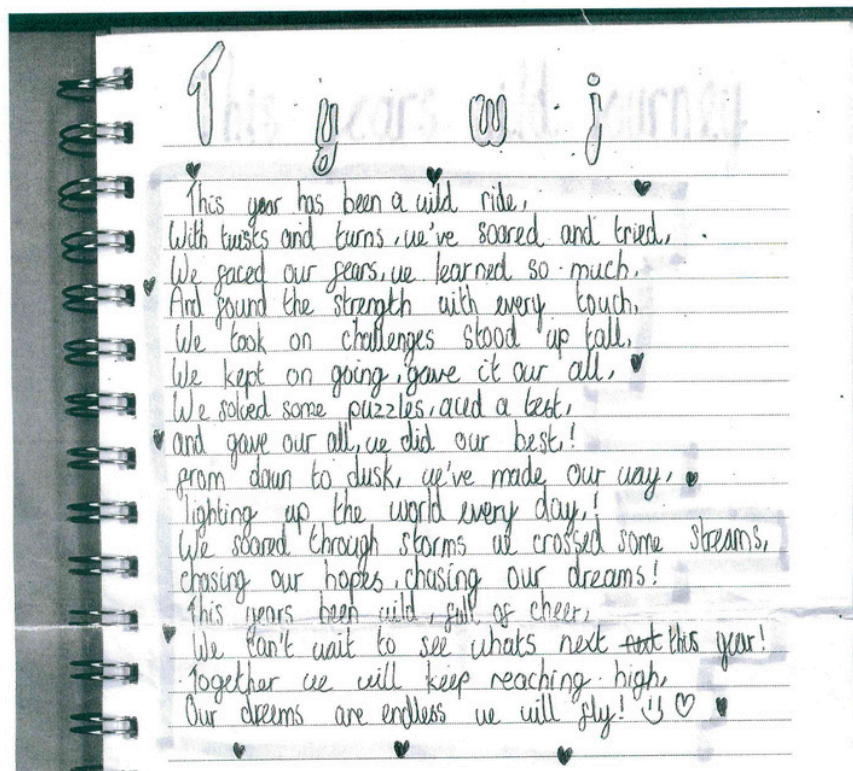 T y w j
This year has been a wild ride,
With twists and turns, we've soared and tried,
We faced our fears, we learned so much,
And found the strength with every touch,
We took on challenges stood up tall,
We kept on going, gave it our all,
We solved some puzzles, aced a test,
and gave our all, we did our best!
from dawn to dusk, we've made our way,
lighting up the world every day,!
We soared through storms we crossed some streams,
chasing our hopes, chasing our dreams!
This years been wild, full of cheer,
We can't wait to see whats next this year!
Together we will keep reaching high,
Our dreems are endless we will fly!